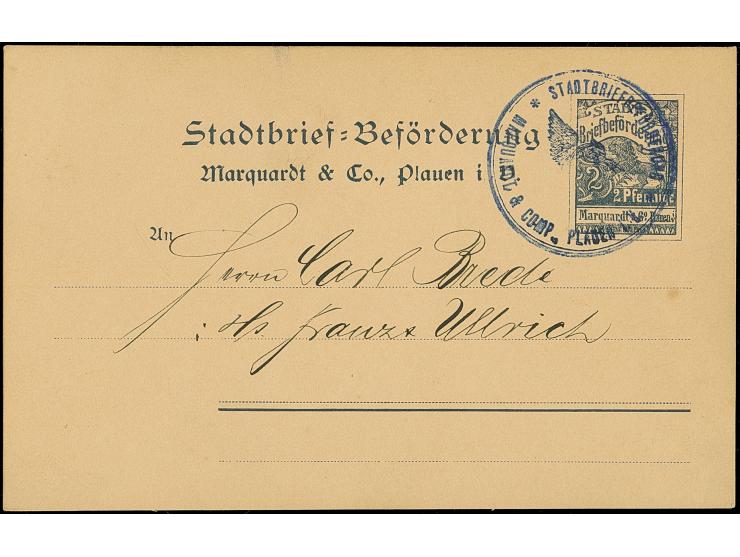 Stadtbrief-Beförderung
Marquardt & Co., Plauen i V.
STADTBRIEFBEFÖRDERUNG
* MARQUARDT & COMP. PLAUEN
STADT
Briefbeförderung
2
2 Pfennige
Marquardt & Co. Plauen i.
An
Herrn Carl Brede
i/Hs. Franz Ullrich